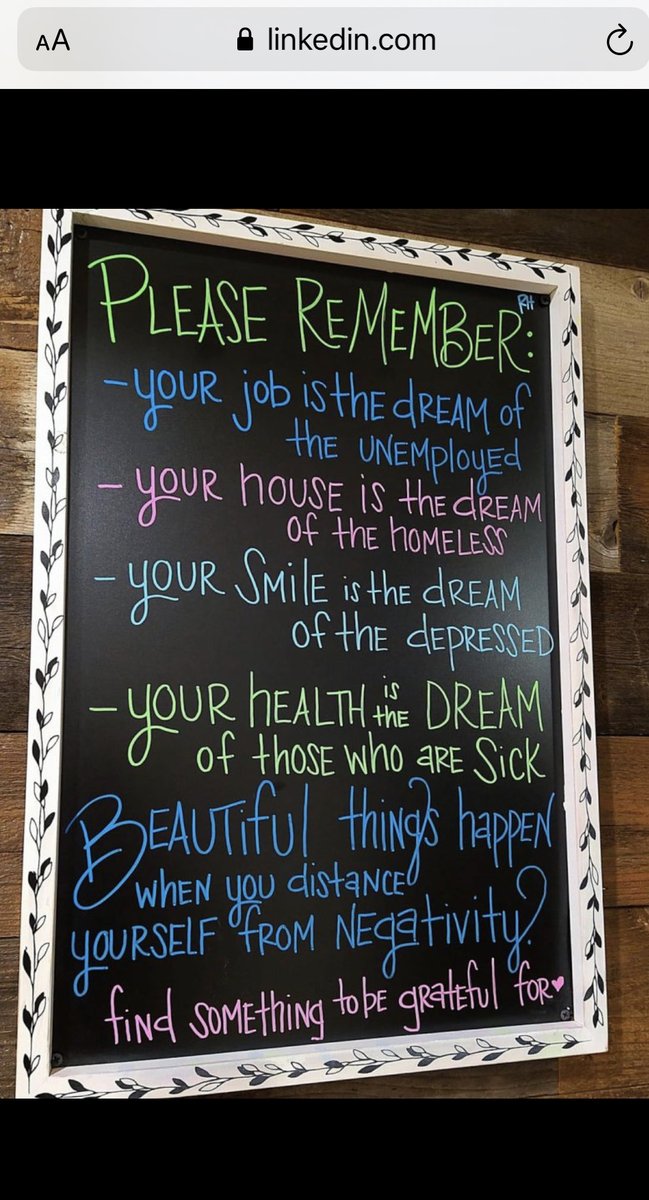 AA linkedin.com
RH
PLEASE REMEMBER:
-YOUR job is the dREAM of
the UNEMployed
- YOUR house is the dREAM
of the homeless
- YOUR Smile is the dREAM
of the depressed
- YOUR hEALTH is the DREAM
of those who are Sick
BEAUTiful things happen
when you distance
yourself from Negativity?
find something to be grateful for♥